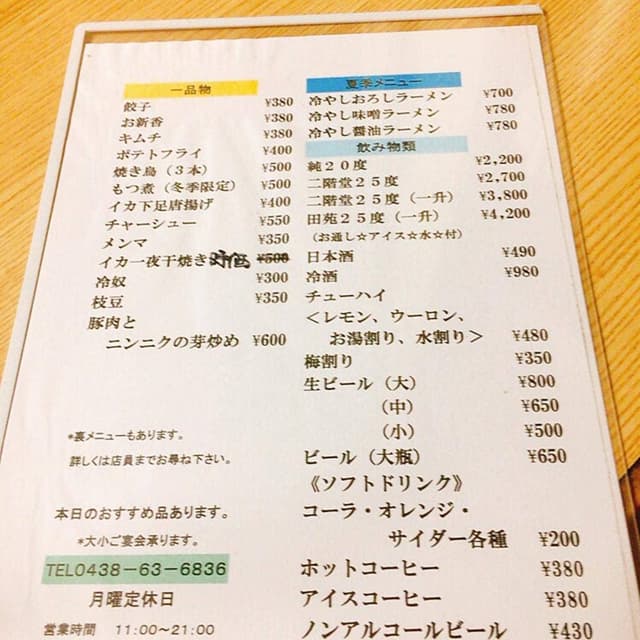 一品物
餃子 ¥380
お新香 ¥380
キムチ ¥380
ポテトフライ ¥400
焼き鳥（３本） ¥500
もつ煮（冬季限定） ¥500
イカ下足唐揚げ ¥400
チャーシュー ¥550
メンマ ¥350
イカ一夜干焼き ¥500
冷奴 ¥300
枝豆 ¥350
豚肉と
ニンニクの芽炒め ¥600
*裏メニューもあります。
詳しくは店員までお尋ね下さい。
本日のおすすめ品あります。
*大小ご宴会承ります。
TEL0438-63-6836
月曜定休日
営業時間 11:00～21:00
夏季メニュー
冷やしおろしラーメン ¥700
冷やし味噌ラーメン ¥780
冷やし醤油ラーメン ¥780
飲み物類
純２０度 ¥2,200
二階堂２５度 ¥2,700
二階堂２５度（一升） ¥3,800
田苑２５度（一升） ¥4,200
（お通し☆アイス☆水☆付）
日本酒 ¥490
冷酒 ¥980
チューハイ
＜レモン、ウーロン、
お湯割り、水割り＞ ¥480
梅割り ¥350
生ビール（大） ¥800
（中） ¥650
（小） ¥500
ビール（大瓶） ¥650
《ソフトドリンク》
コーラ・オレンジ・
サイダー各種 ¥200
ホットコーヒー ¥380
アイスコーヒー ¥380
ノンアルコールビール ¥430